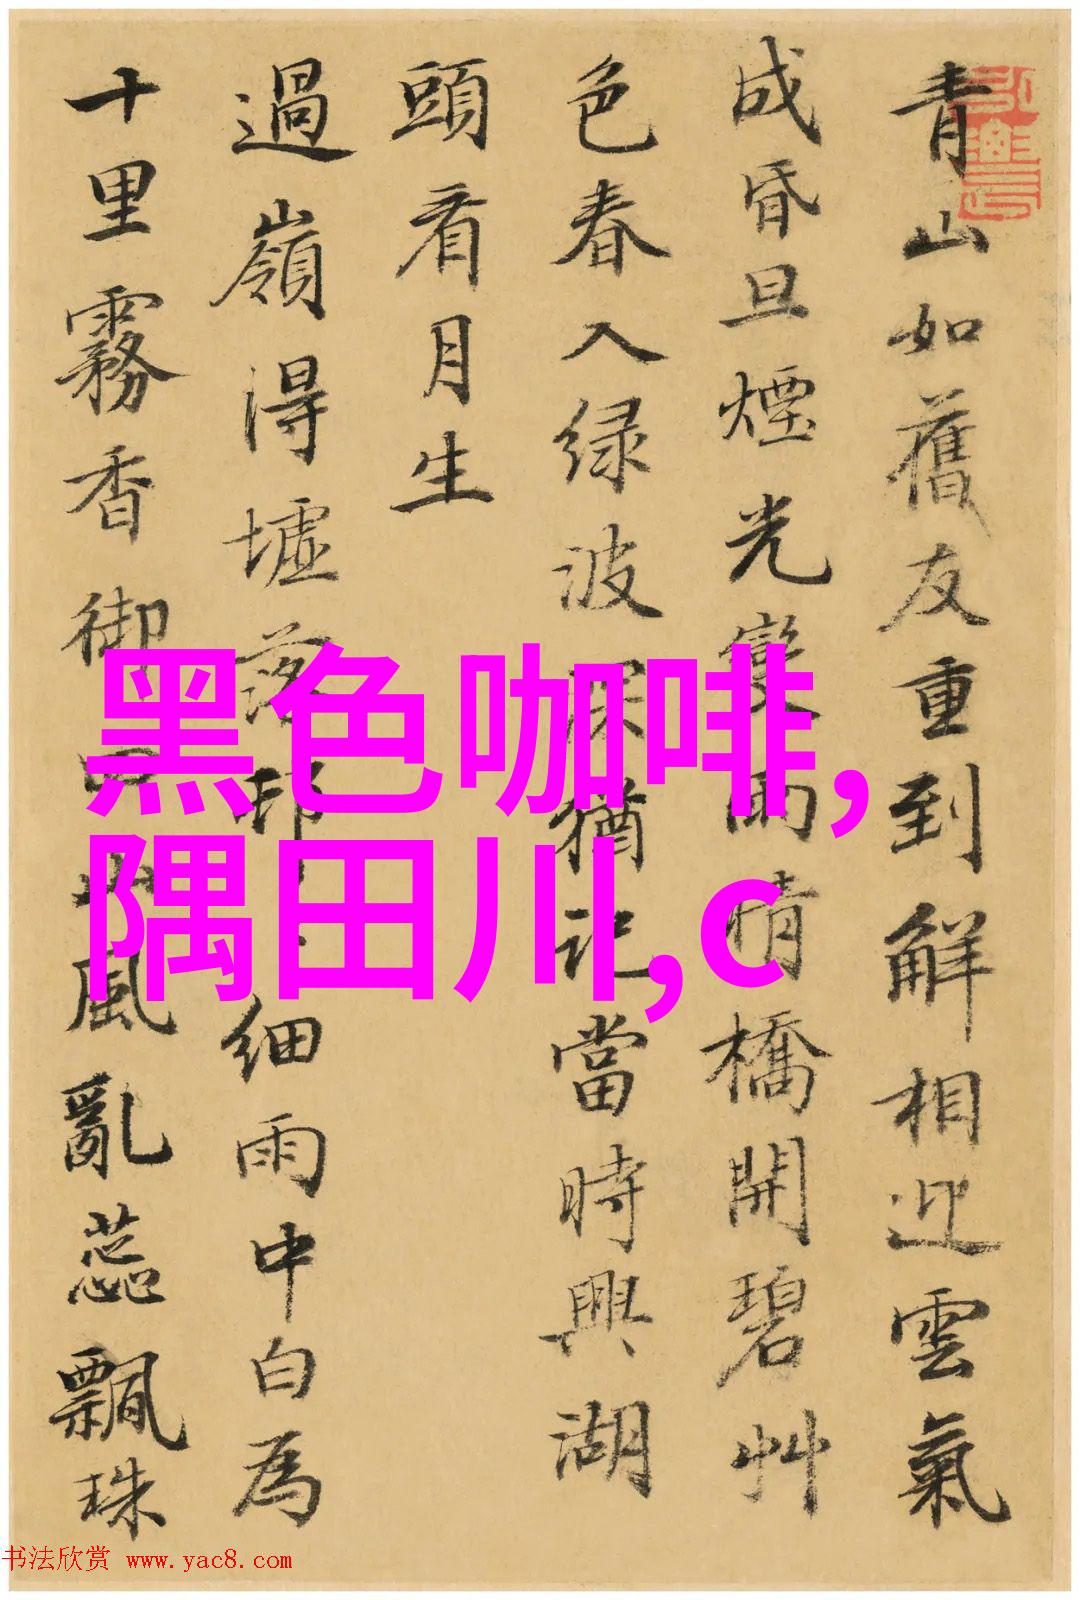 青山如舊友重到解相迎雲氣
成昏旦煙光變雨情橋開碧艸
色春入绿波深猶記當時興湖
頭看月生
過嶺得墟落細雨中白為
十里霧香御風亂蕊飄珠
黑色咖啡,
隅田川,c
书法欣赏 www.yac8.com